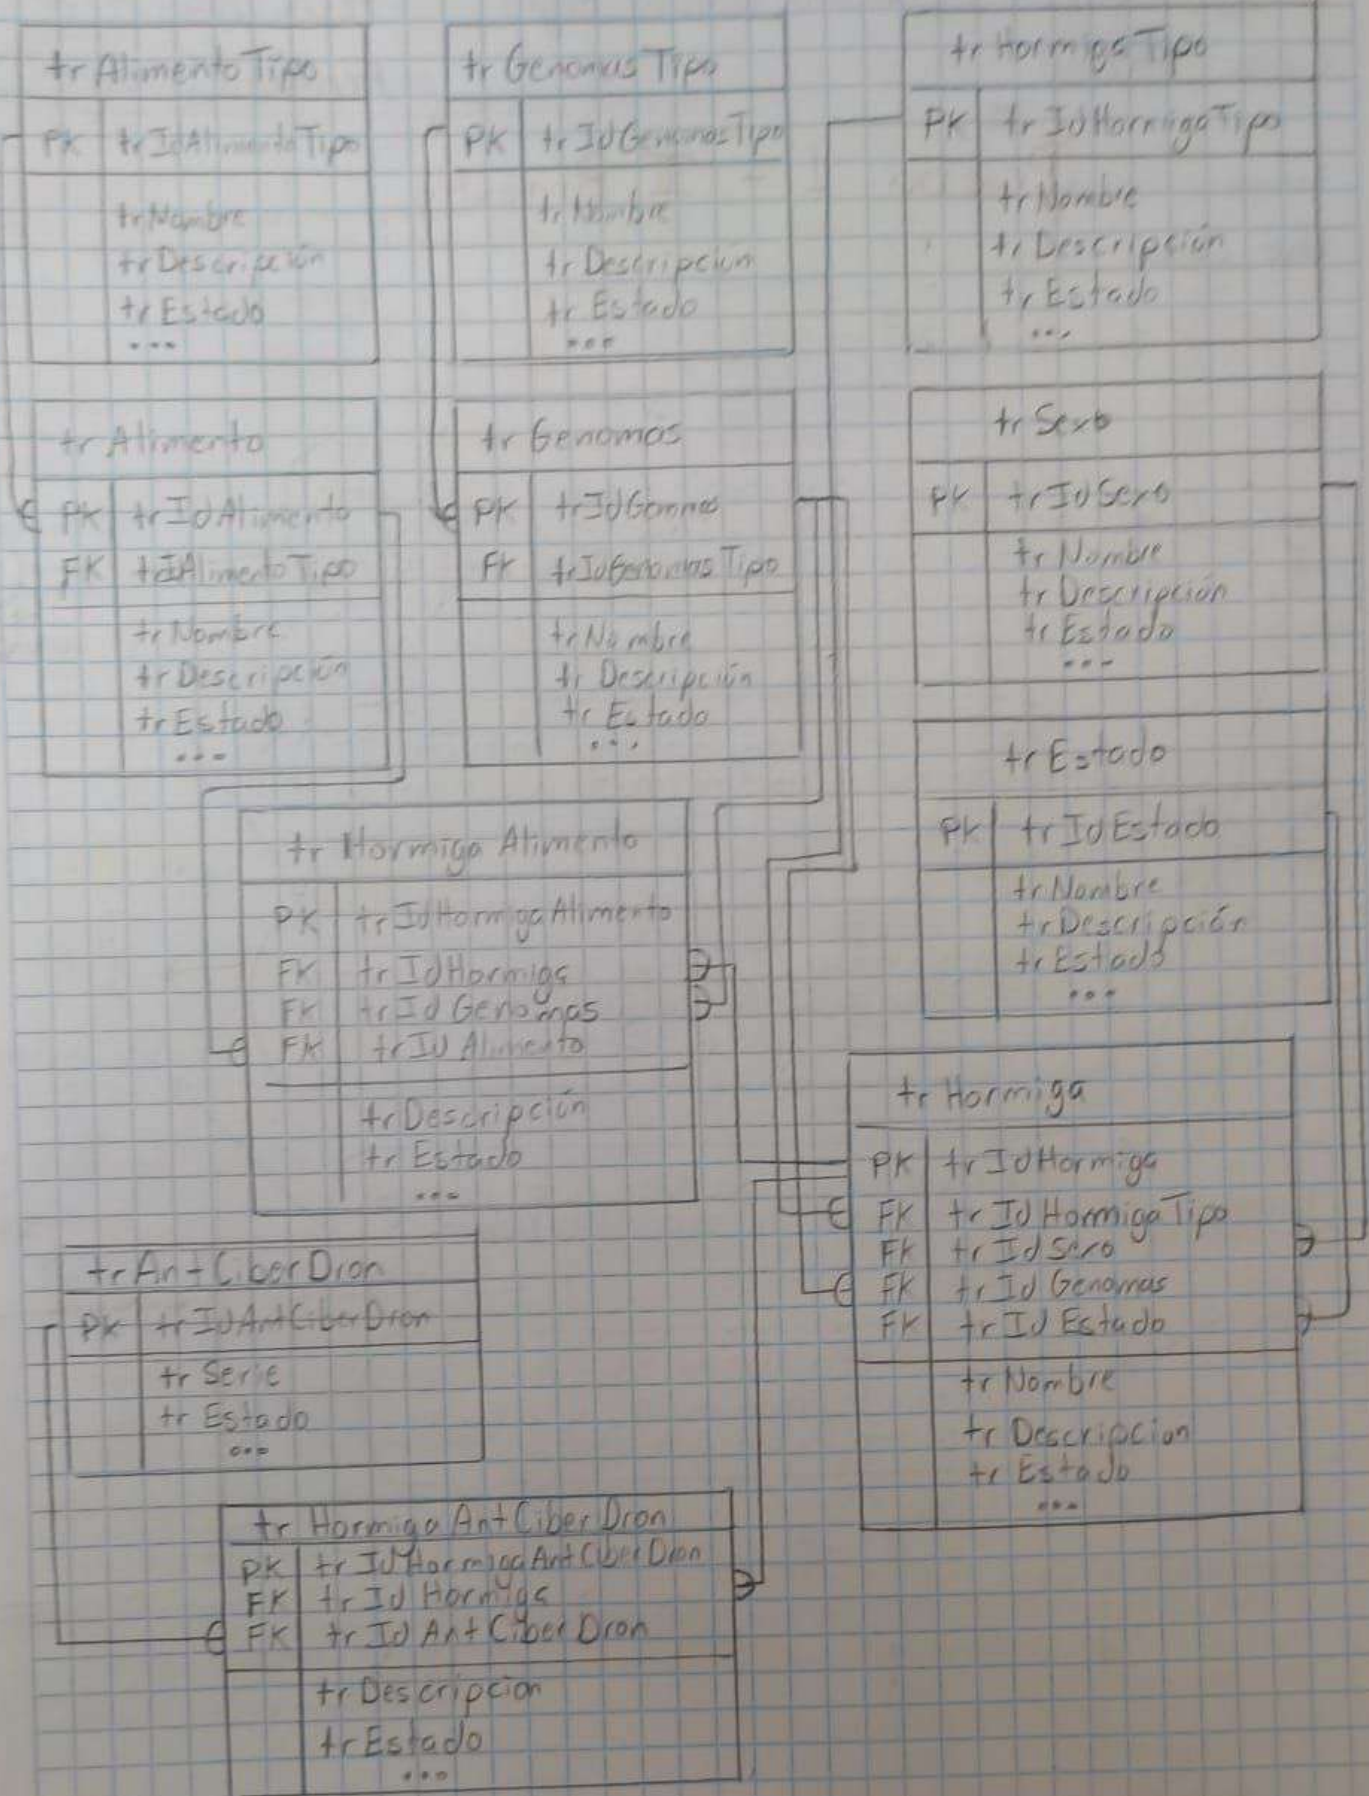 tr AlimentoTipo
PK tr IdAlimentoTipo
tr Nombre
tr Descripción
tr Estado
...
tr Genomas Tipo
PK tr IdGenomasTipo
tr Nombre
tr Descripción
tr Estado
...
tr Hormiga Tipo
PK tr IdHormigaTipo
tr Nombre
tr Descripción
tr Estado
...
tr Alimento
PK tr IdAlimento
FK trIAlimentoTipo
tr Nombre
tr Descripción
tr Estado
...
tr Genomas
PK tr IdGenomas
FK tr IdGenomas Tipo
tr Nombre
tr Descripción
tr Estado
...
tr Sexo
PK tr IdSexo
tr Nombre
tr Descripción
tr Estado
...
tr Estado
PK tr IdEstado
tr Nombre
tr Descripción
tr Estado
...
tr Hormiga Alimento
PK tr IdHormigaAlimento
FK tr IdHormiga
FK tr Id Genomas
FK tr Id Alimento
tr Descripción
tr Estado
...
tr Hormiga
PK tr IdHormiga
FK tr Id Hormiga Tipo
FK tr Id Sexo
FK tr Id Genomas
FK tr Id Estado
tr Nombre
tr Descripcion
tr Estado
...
tr Ant Ciber Dron
PK tr IdAntCiberDron
tr Serie
tr Estado
...
tr Hormiga Ant Ciber Dron
PK tr IdHormigaAntCiberDron
FK tr Id Hormiga
FK tr Id Ant Ciber Dron
tr Descripcion
tr Estado
...